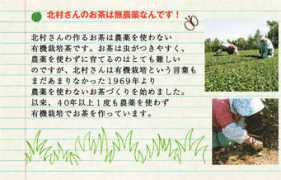 北村さんのお茶は無農薬なんです！
北村さんの作るお茶は農薬を使わない
有機栽培茶です。お茶は虫がつきやすく、
農薬を使わずに育てるのはとても難しい
のですが、北村さんは有機栽培という言葉も
まだあまりなかった1969年より
農薬を使わないお茶づくりを始めました。
以来、40年以上1度も農薬を使わず
有機栽培でお茶を作っています。